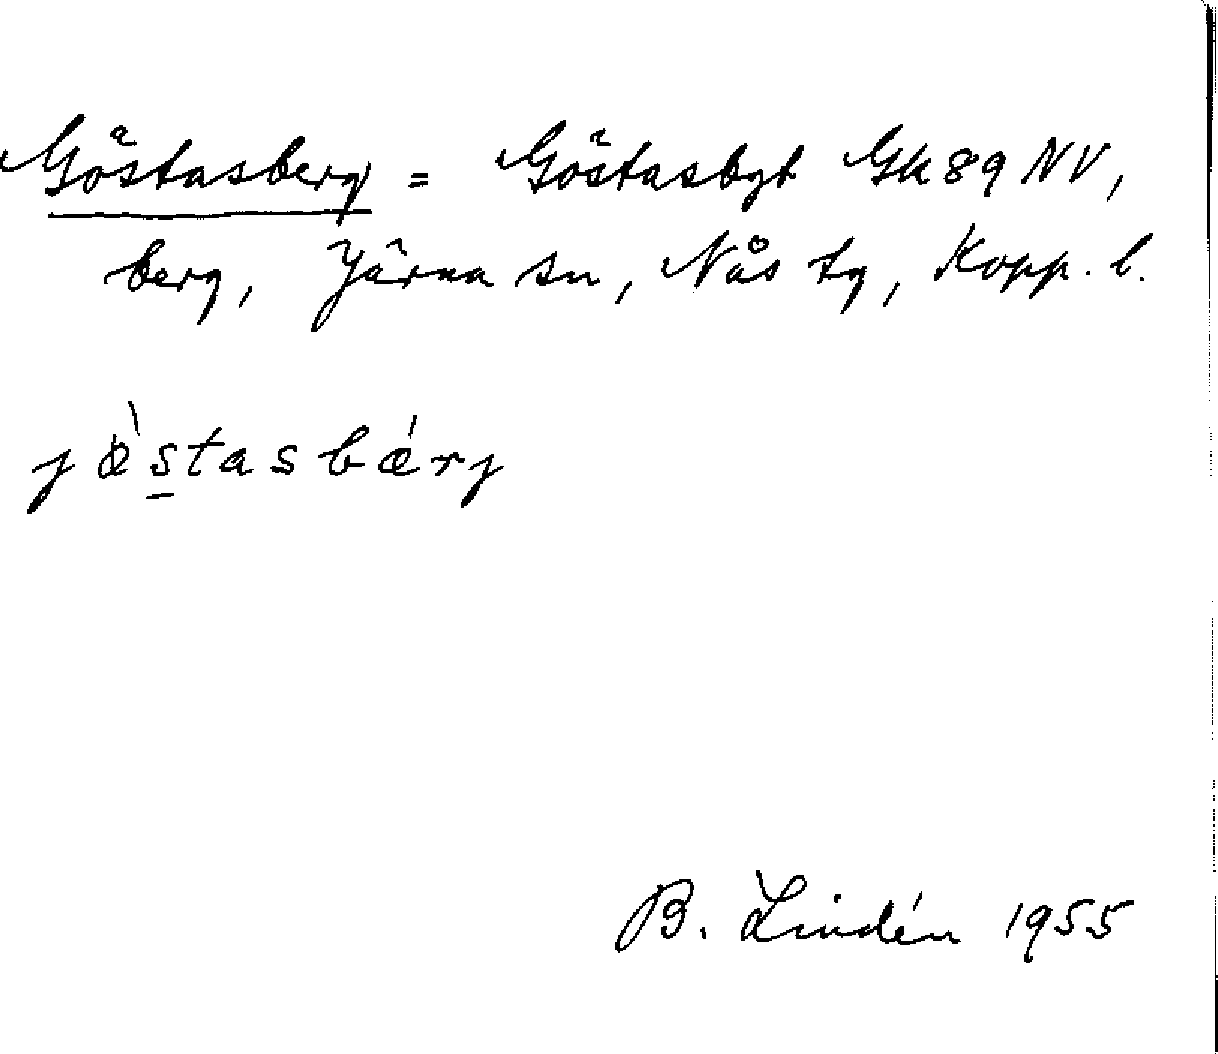 Göstasberg = Göstasbgt Gk 89 NV,
berg, Järna sn, Nås tg, Kopp. l.
jœ̀stasbǽrj
B. Lindén 1955